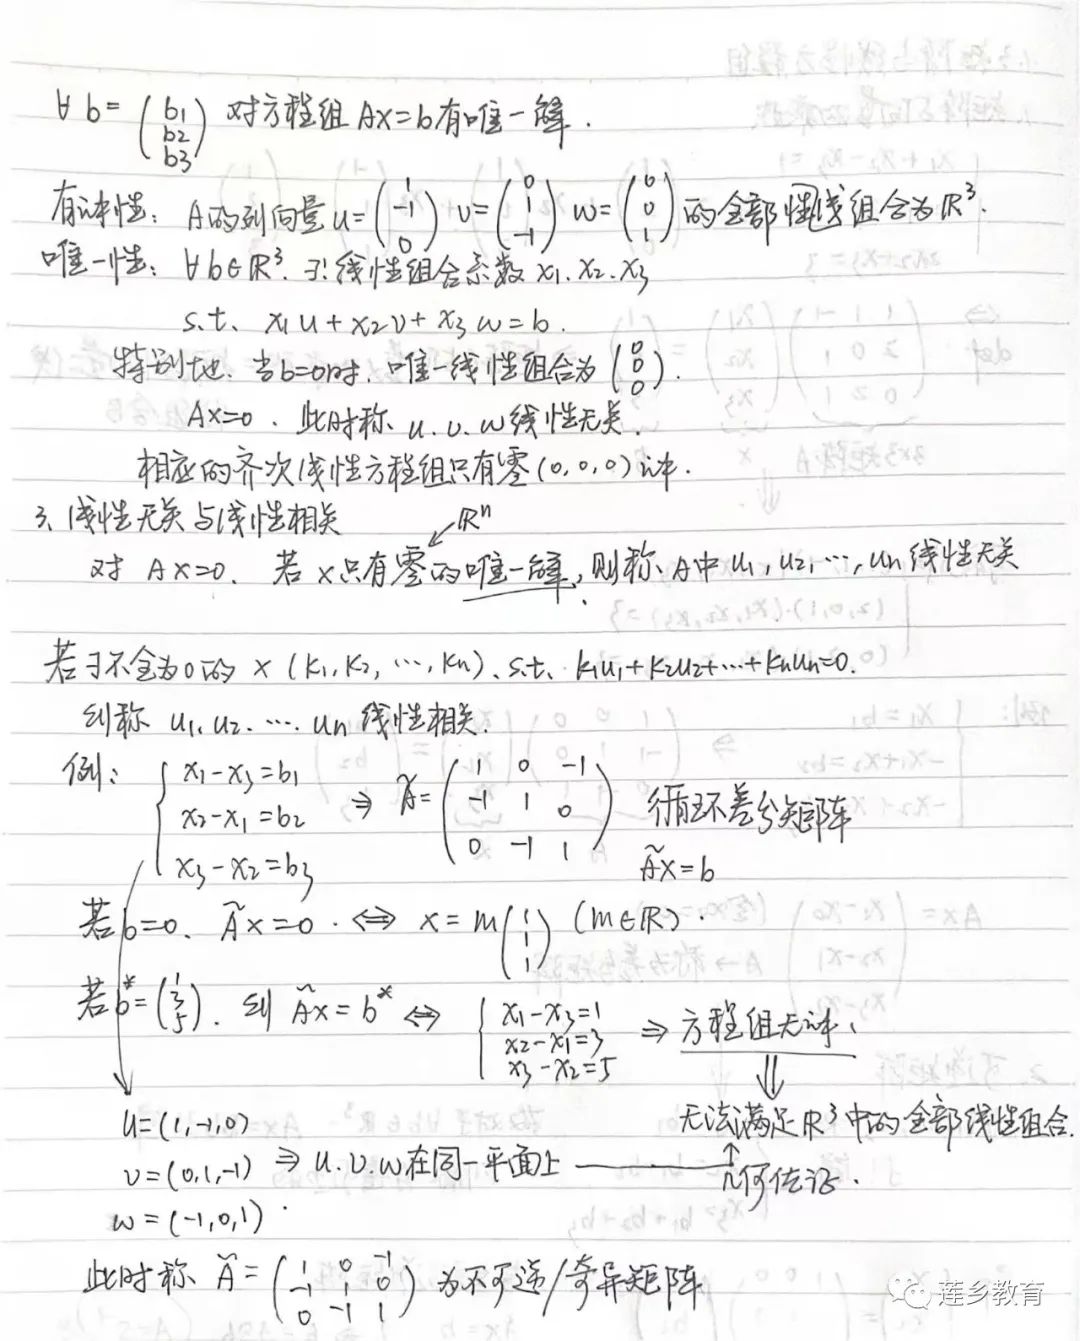 ∀ b = (b1 b2 b3) 对方程组 Ax=b 有唯一解.
有解性: A的列向量 u = (1 -1 0) v = (0 1 -1) w = (0 0 1) 的全部线性组合为 ℝ³.
唯一性: ∀b∈ℝ³. ∃! 线性组合系数 x1. x2. x3
s.t. x1u + x2v + x3w = b.
特别地. 当b=0时. 唯一线性组合为 (0 0 0).
Ax=0. 此时称 u. v. w 线性无关.
相应的齐次线性方程组只有零(0,0,0)解.
3. 线性无关与线性相关
ℝⁿ
对 Ax=0. 若 x只有零的唯一解, 则称 A中 u1, u2, ⋯, un 线性无关.
若∃不全为0的 x (k1, k2, ⋯, kn). s.t. k1u1+k2u2+⋯+knun=0.
则称 u1. u2. ⋯. un 线性相关.
例: { x1-x3=b1 x2-x1=b2 x3-x2=b3 ⇒ Ã = (1 0 -1 / -1 1 0 / 0 -1 1) 循环差分矩阵
Ãx=b
若b=0. Ãx=0. ⇔ x = m(1 1 1) (m∈ℝ).
若b*=(1 3 5). 则 Ãx=b* ⇔ { x1-x3=1 x2-x1=3 x3-x2=5 ⇒ 方程组无解.
⇓
无法满足ℝ³中的全部线性组合.
u=(1,-1,0)
v=(0,1,-1) ⇒ u. v. w 在同一平面上 → 几何佐证.
w=(-1,0,1).
此时称 Ã = (1 0 -1 / -1 1 0 / 0 -1 1) 为不可逆/奇异矩阵
莲乡教育